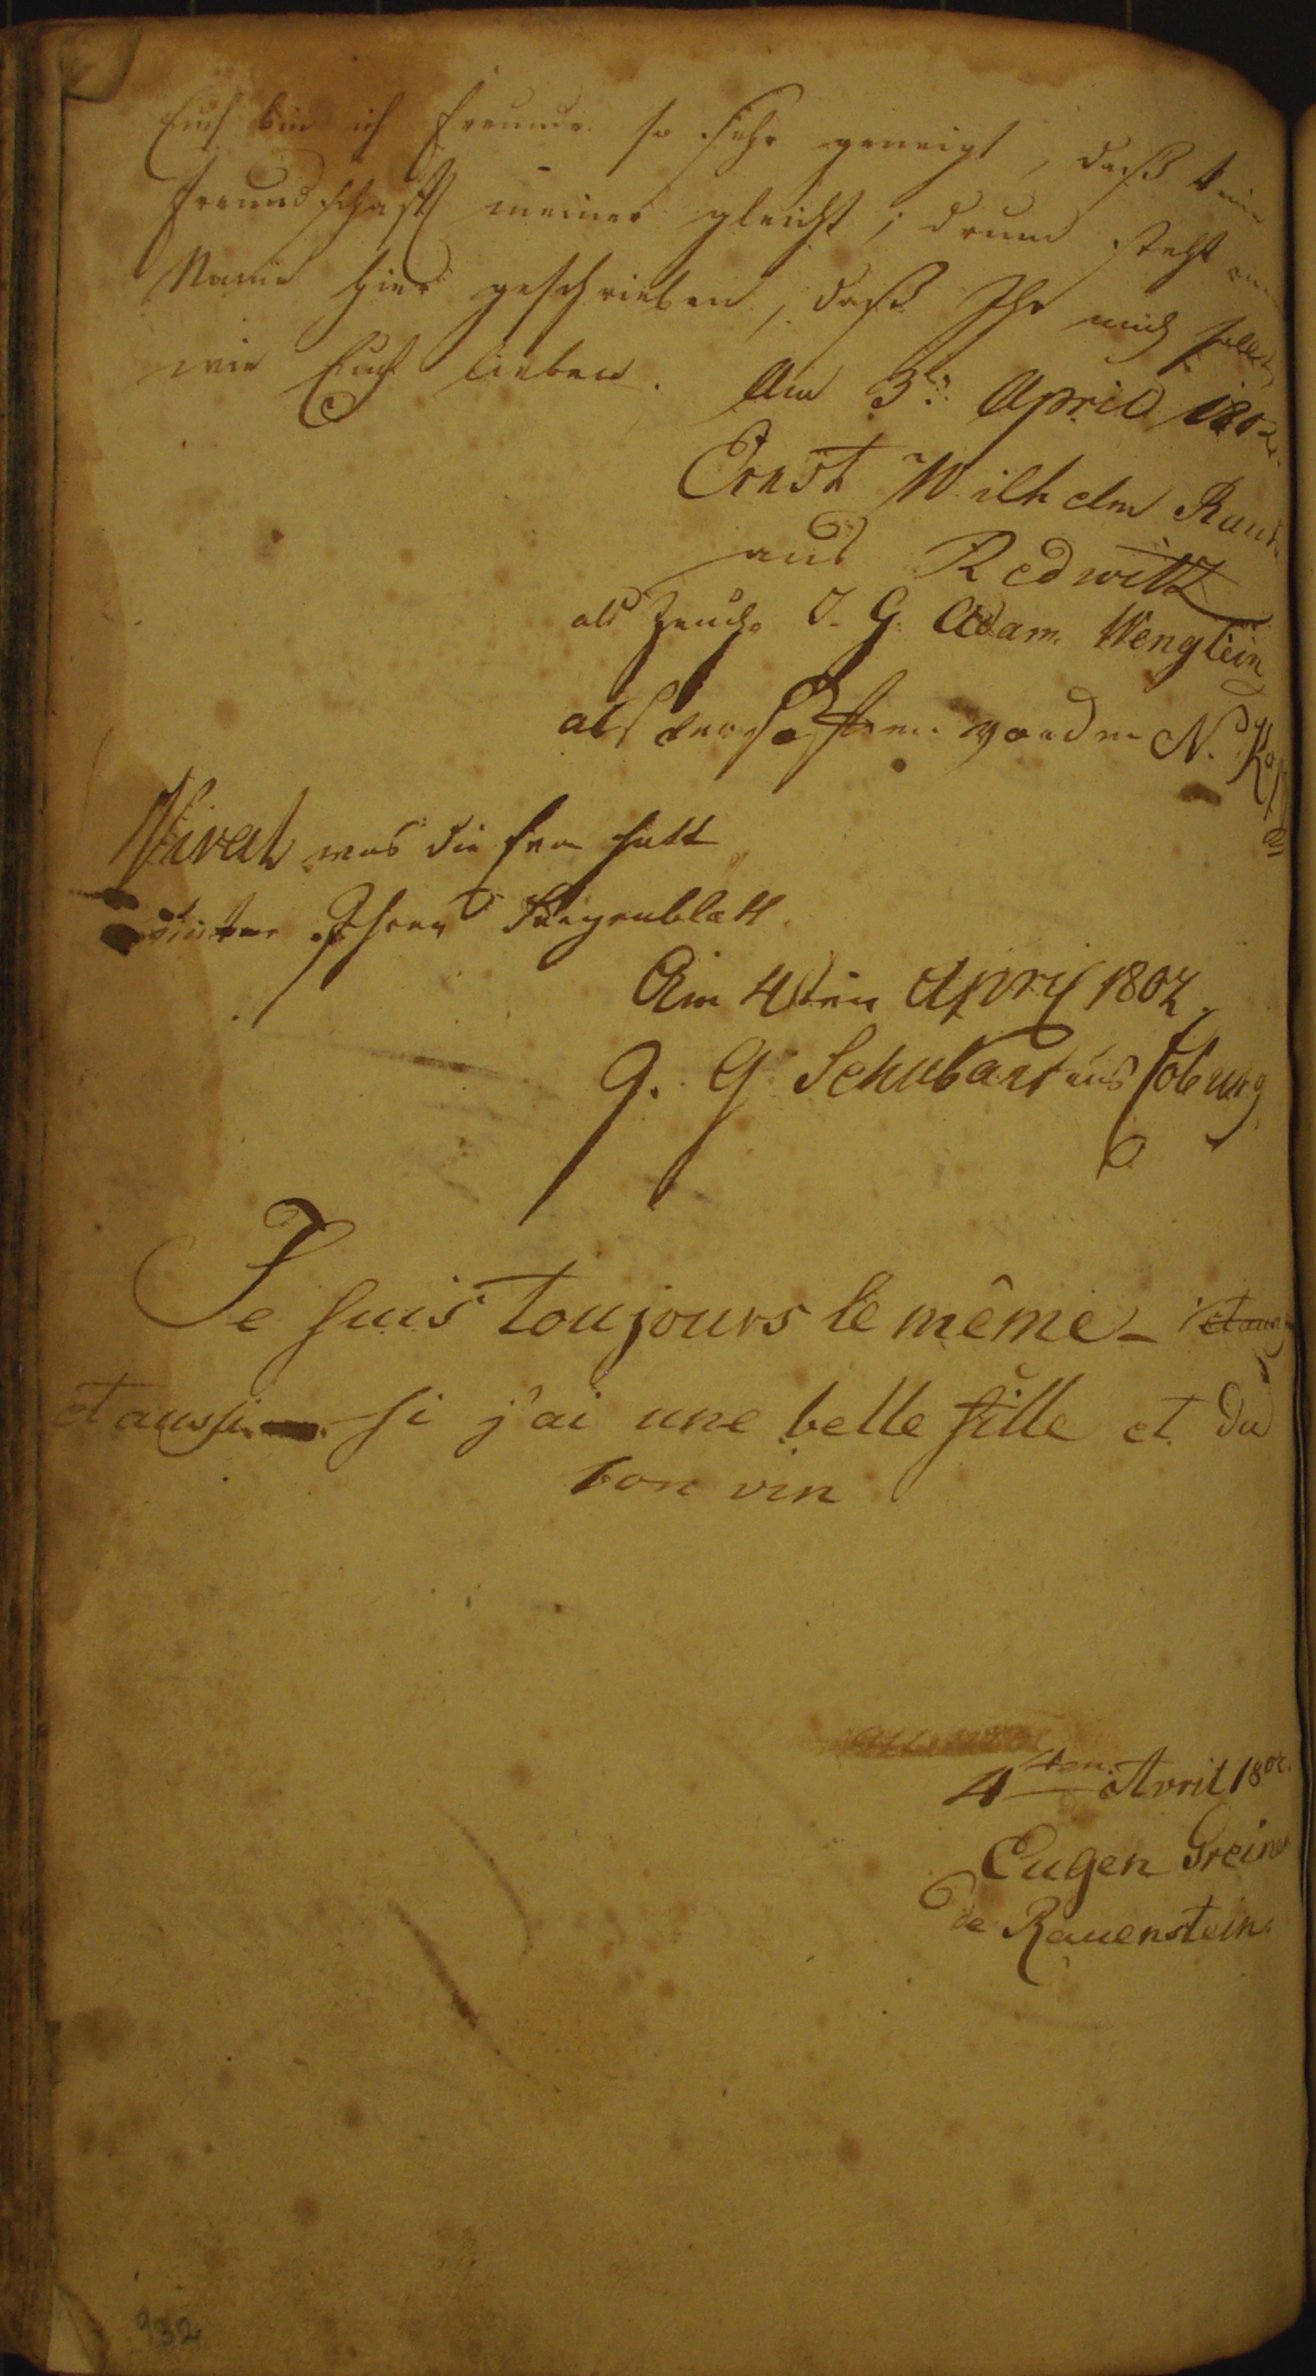 Euch bin ich Freunde so sehr geneigt, daß keine
Freundschaft meiner gleicht; drum steht
Name hier geschrieben, daß Ihr mich sollet
wie Euch lieben. Am 3t. April 1802.
Ernst Wilhelm
aus Redwitz
als Zeuch J. G. Adam Wenglein
als N.
Vivat was die hatt
hinter Ihren
Am 4ten April 1802.
G. G. Schubart aus Coburg
Je suis toujours le même -
et aussi si j'ai une belle fille et du
bon vin
4ten Avril 1802.
Eugen Greiner
de Rauenstein.
932